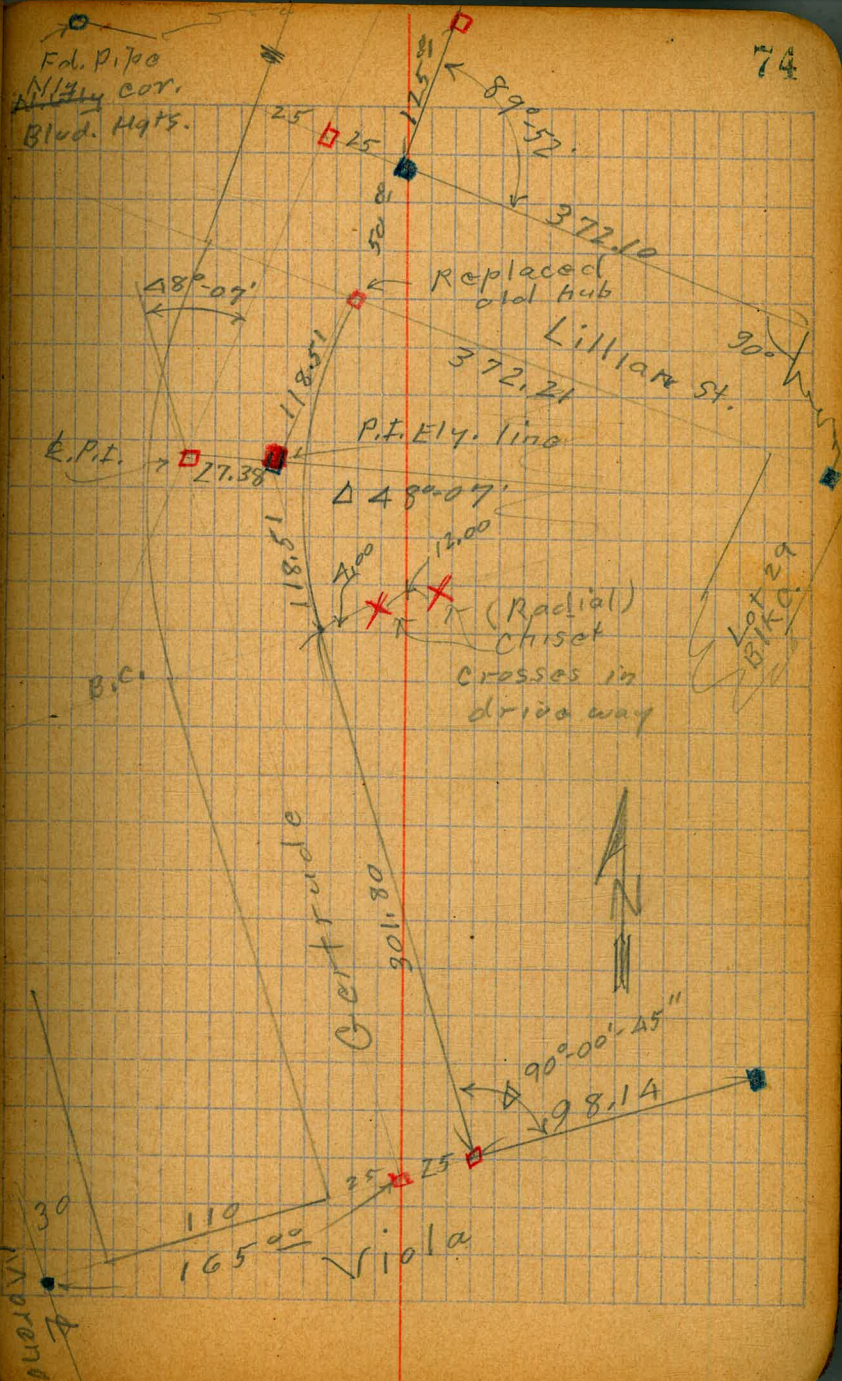 74
Fd. Pipe
N'ly cor.
Blvd. Hgts.
25
25
125.81
89°-52'
50.81
372.10
Replaced
old hub
Δ48°-07'
Lillian St.
90°
118.51
372.21
P.I. Ely. line
₵.P.I.
27.38
Δ 48°-07'
118.51
4.00
12.00
(Radial)
Chisel
Crosses in
drive way
Lot 29
Blk C.
B.C.
Gertrude
301.80
N
90°-00'-45"
98.14
25
25
30
110
165.00
Viola